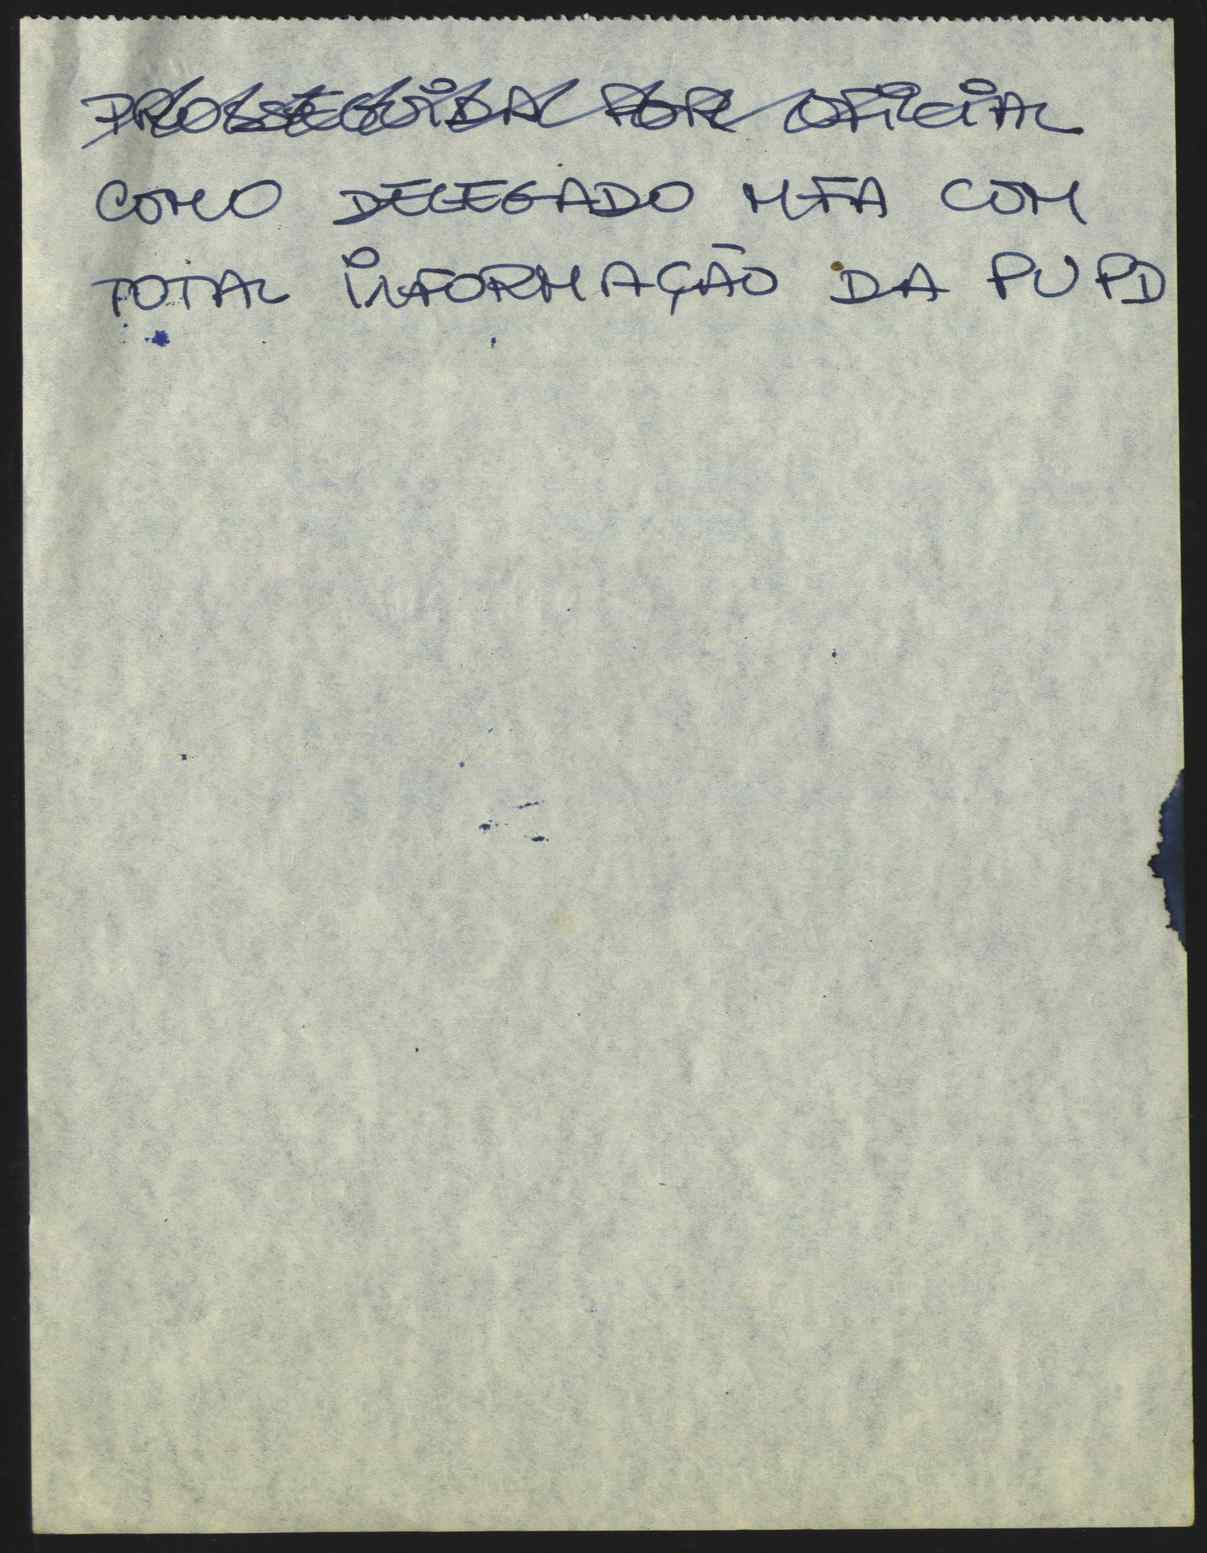 PROSSEGUIDA POR OFICIAL
COMO DELEGADO MFA COM
TOTAL INFORMAÇÃO DA PUPD